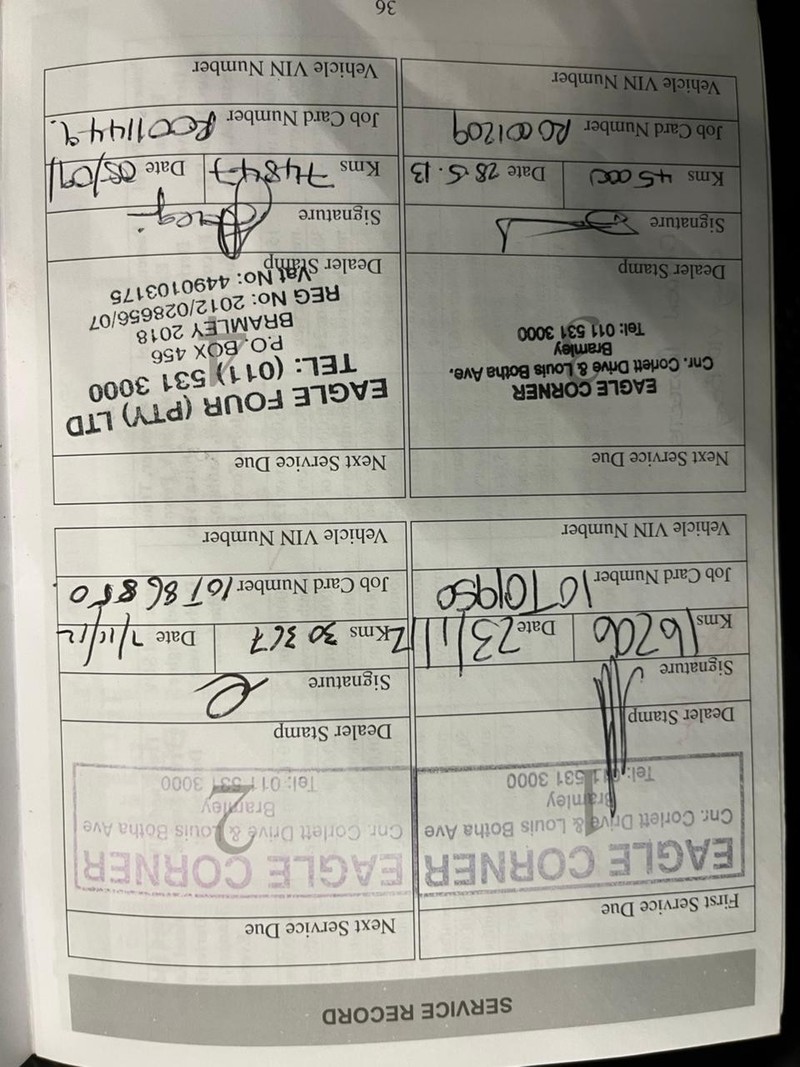 SERVICE RECORD
First Service Due
EAGLE CORNER
Cnr. Corlett Drive & Louis Botha Ave
Bramley
Tel: 011 531 3000
1
Dealer Stamp
Signature
Kms 16206 Date 23/11/11
Job Card Number 10T01950
Vehicle VIN Number
Next Service Due
EAGLE CORNER
Cnr. Corlett Drive & Louis Botha Ave
Bramley
Tel: 011 531 3000
2
Dealer Stamp
Signature
Kms 30367 Date 7/11/12
Job Card Number 10T86850
Vehicle VIN Number
Next Service Due
EAGLE CORNER
Cnr. Corlett Drive & Louis Botha Ave.
Bramley
Tel: 011 531 3000
Dealer Stamp
Signature
Kms 45000 Date 28.5.13
Job Card Number R0001209
Vehicle VIN Number
Next Service Due
EAGLE FOUR (PTY) LTD
TEL: (011) 531 3000
P.O. BOX 456
BRAMLEY 2018
REG No: 2012/028656/07
Vat No: 4490103175
Dealer Stamp
Signature
Kms 74847 Date 05/09/
Job Card Number R0011449.
Vehicle VIN Number
36